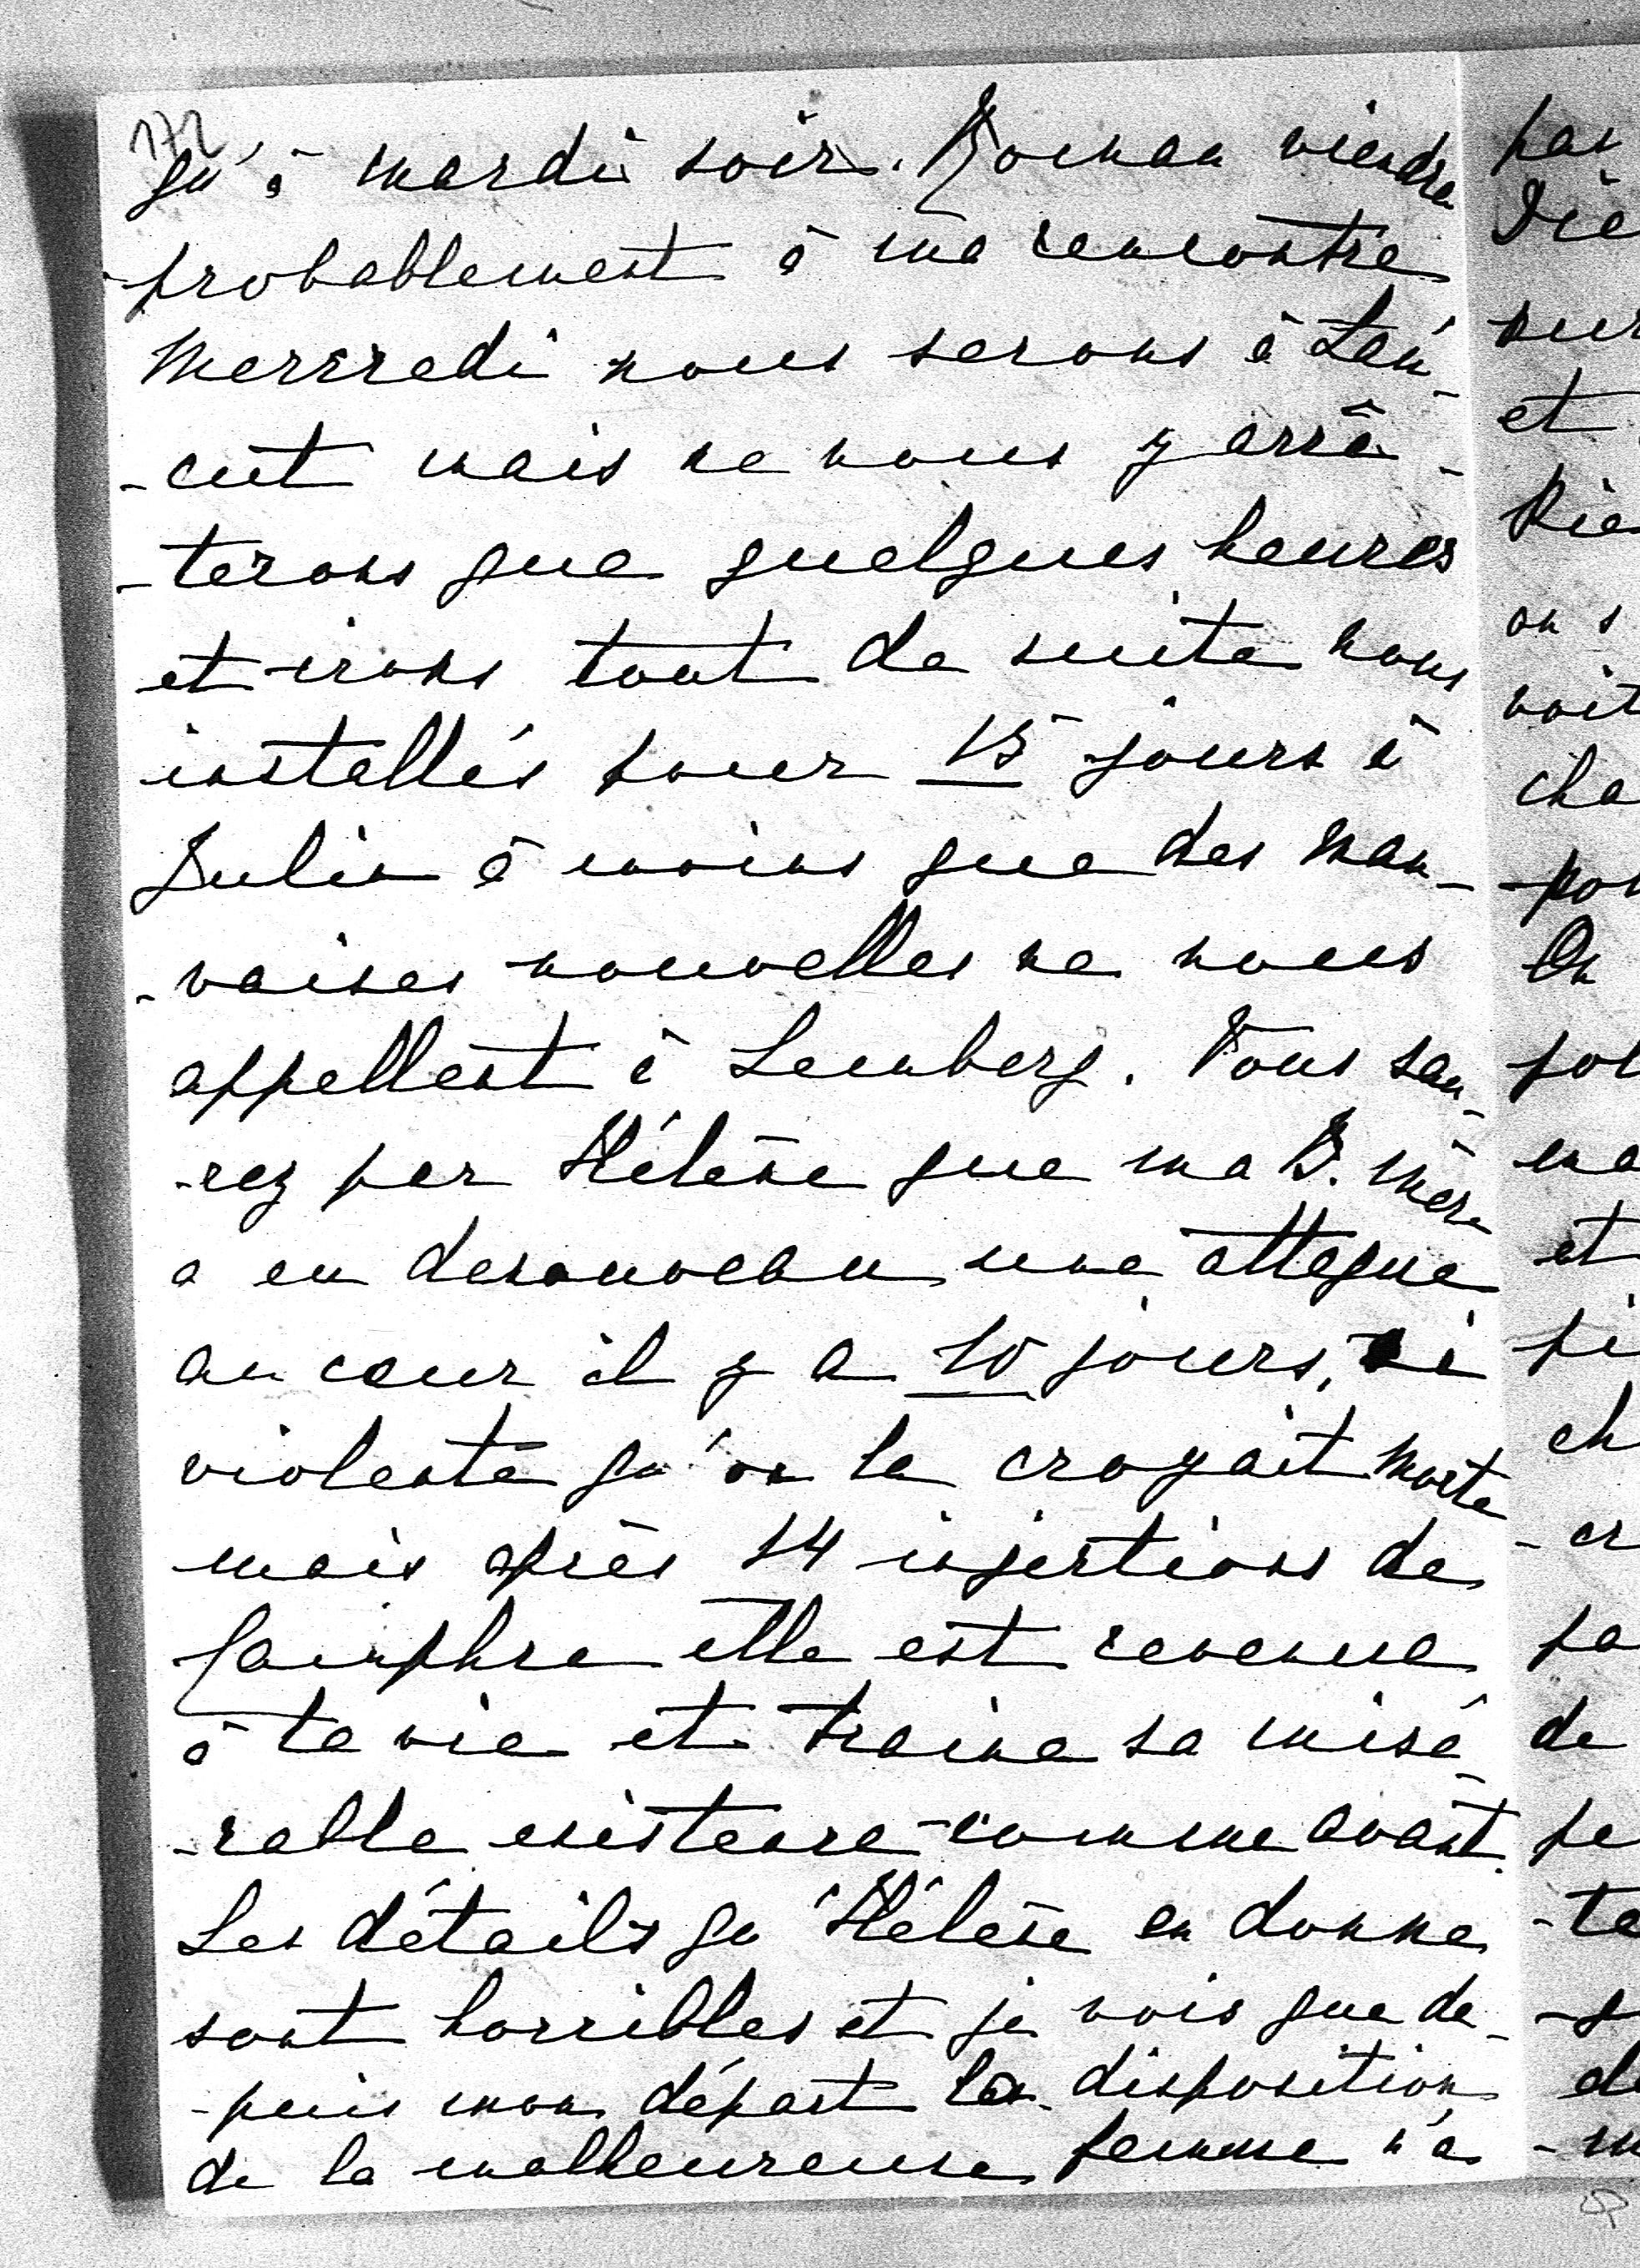 172
qu'à mardi soir. Roman viendra
probablement à ma rencontre
Mercredi nous serons à Łań-
-cut mais ne nous y arrê-
-terons que quelques heures
et irons tout de suite nous
installés pour 15 jours à
Julin à moins que des mau-
-vaises nouvelles ne nous
appellent à Lemberg. Vous sau-
-rez par Hélène que ma B. mère
a eu denouveau une attaque
au cœur il y a 10 jours, si
violente qu'on la croyait morte
mais après 14 injections de
camphre elle est revenue
à la vie et traine sa misé-
-rable existence comme avant.
Les détails qu'Hélène en donne
sont horribles et je vois que de-
-puis mon départ la disposition
de la malheureuse femme n'a